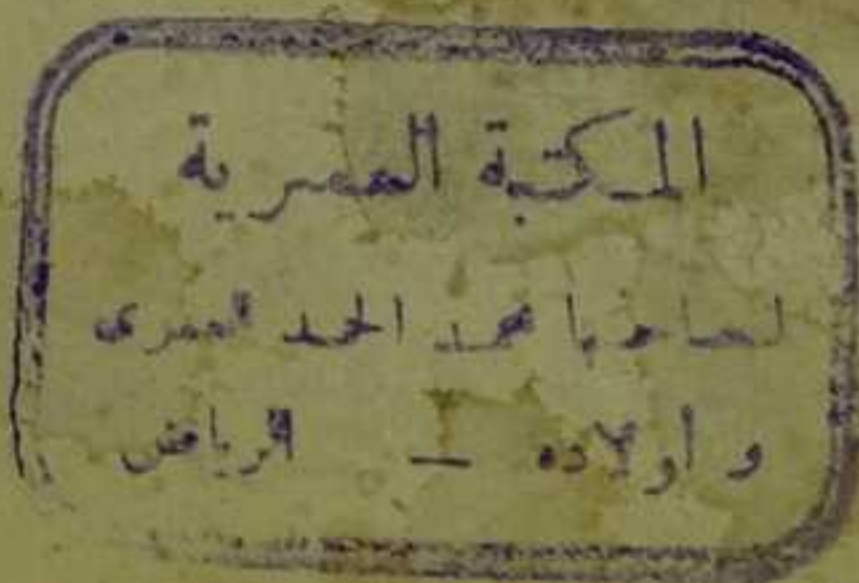 المكتبة العمرية
لصاحبها محمد الحمد العمرى
و أولاده — الرياض